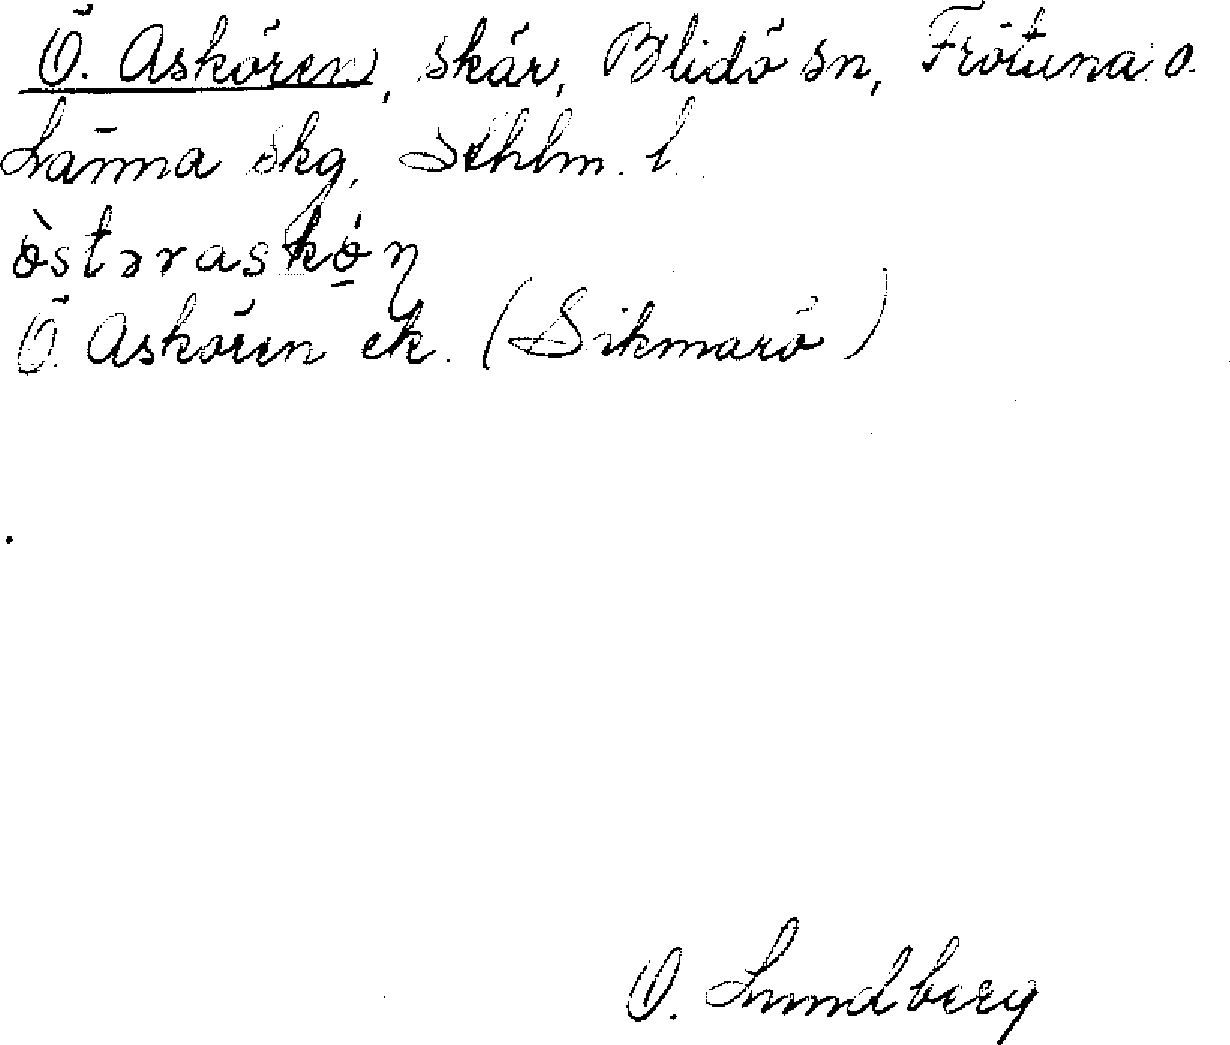 Ö. Askören, skär, Blidö sn, Frötuna o.
Länna skg, Sthlm. l.
òstəraskö̀ṇ
Ö. Askören ek. (Sikmarö)
O. Lundberg